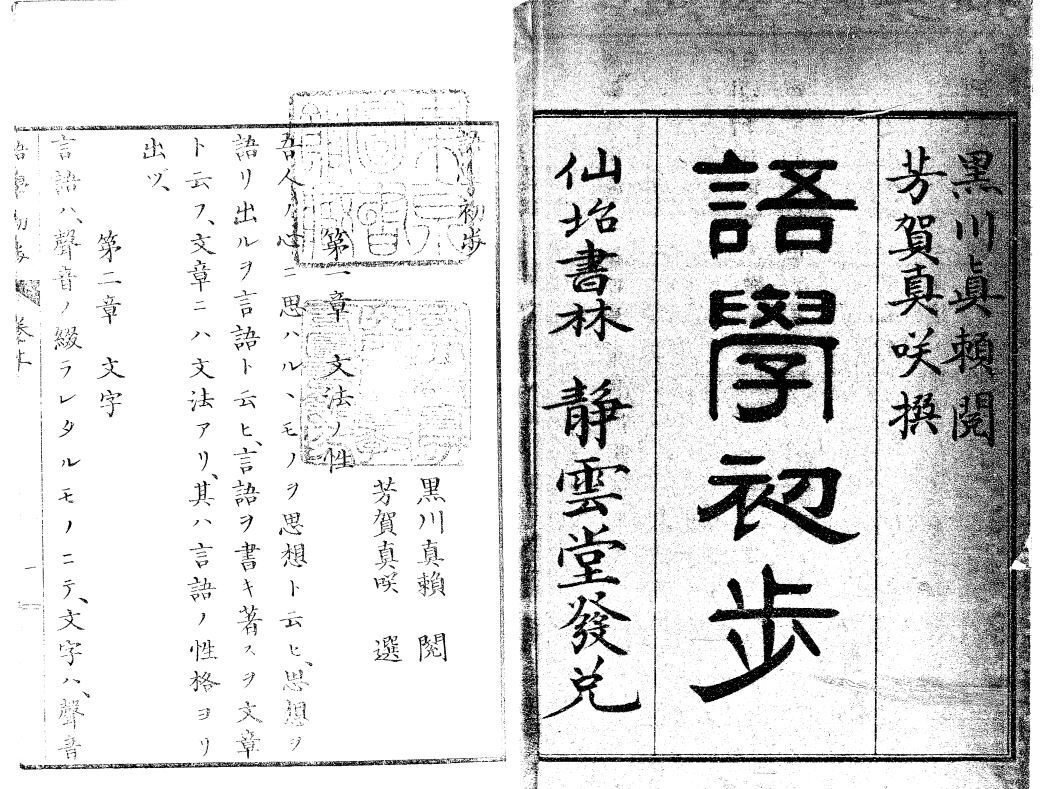 黒川眞賴閲
芳賀真咲撰
語學初步
仙䑓書林 靜雲堂發兌
初步
黒川真賴 閲
芳賀真咲 選
第一章 文法ノ性
吾人ノ心ニ思ハルヽモノヲ思想ト云ヒ、思想ヲ
語リ出ルヲ言語ト云ヒ、言語ヲ書キ著スヲ文章
ト云フ、文章ニハ文法アリ、其ハ言語ノ性格ヨリ
出ヅ、
第二章 文字
言語ハ、聲音ノ綴ラレタルモノニテ、文字ハ、聲音